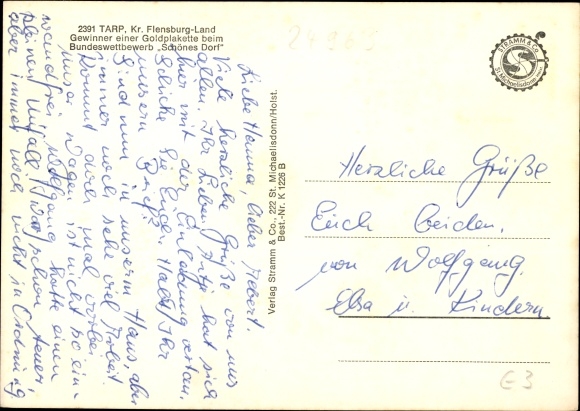 2391 TARP, Kr. Flensburg-Land
Gewinner einer Goldplakette beim
Bundeswettbewerb „Schönes Dorf"
STRAMM & Co.
St. Michaelisdonn
Verlag Stramm & Co., 222 St. Michaelisdonn/Holst.
Best.-Nr. K 1226 B
Liebe Hanna, lieber
Viele herzliche Grüße von uns
allen. Ihr Lieben, hat sich
mit der Einladung vertan.
Habt Ihr
unsern Brief?
Sind nun in unserm Haus, aber
immer noch sehr viel Arbeit.
Kommt doch mal vorbei.
Unser Wagen ist nicht so ein-
wandfrei, Wolfgang hatte einen
kleinen Unfall, schon teuer,
aber immer noch nicht in Ordnung
Herzliche Grüße
Euch beiden.
von Wolfgang.
Elsa u. Kindern.
E3